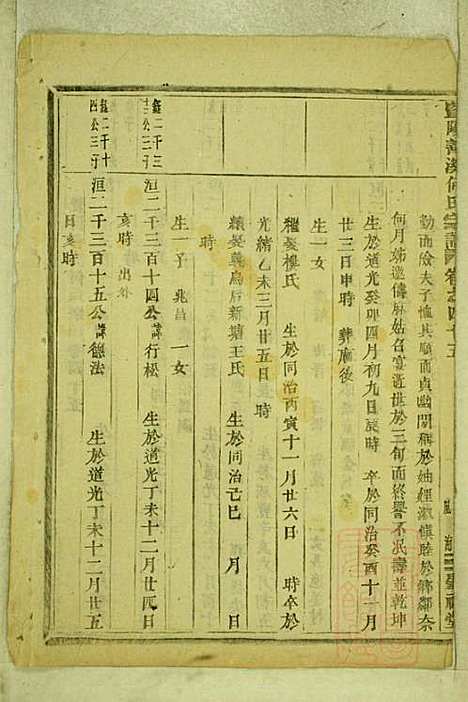 暨陽 何氏宗譜 卷 四十五
勤而儉夫子恤其順而貞幽閒稱於妯娌淑慎睦於鄉鄰奈
何月姊邀儔麻姑召宴逝世於三旬而終譽不泯壽並乾坤
生於道光癸卯四月初九日辰時 卒於同治癸酉十一月
廿三日申時 葬廟後
生一女
繼娶樓氏 生於同治丙寅十一月廿六日 時卒於
光緒乙未三月廿五日 時
續娶義烏后新塘王氏 生於同治己巳 月 日
時
生一子 兆昌 一女
洹二千三百十四公諱行松 生於道光丁未十二月廿四日
亥時 出外
洹二千三百十五公諱德法 生於道光丁未十二月廿五
日亥時